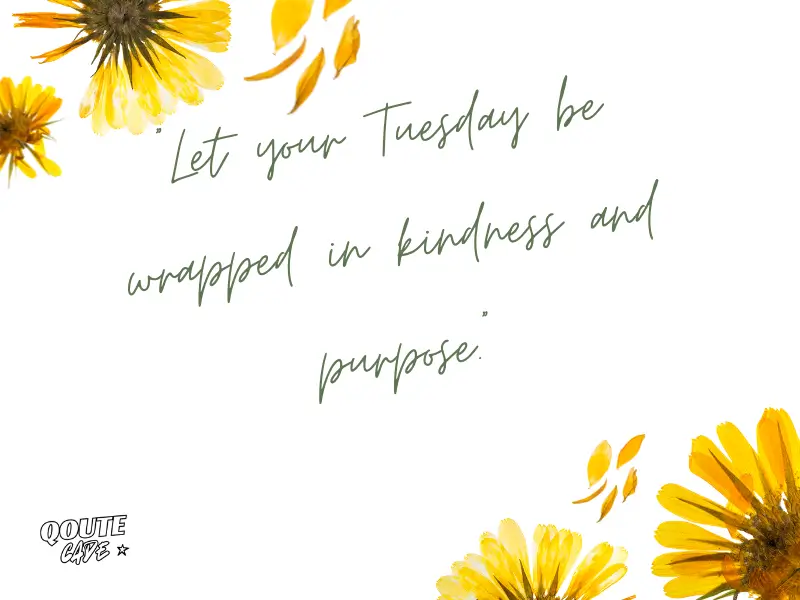 "Let your Tuesday be
wrapped in kindness and
purpose."
QOUTE
CAVE